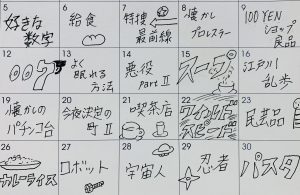 5
好きな
数字
6
給食
7
特捜
最前線
8
懐かし
プロレスラー
9
100YEN
ショップ
良品
12
13
よく
眠れる
方法
14
悪役
part II
15
スーツ
16
江戸川
乱歩
19
懐かしの
パチンコ台
20
今夜決定の
町 II
21
喫茶店
22
ワイルド
スピード
23
民芸品
26
カレーライス
27
ロボット
28
宇宙人
29
忍者
30
パスタ